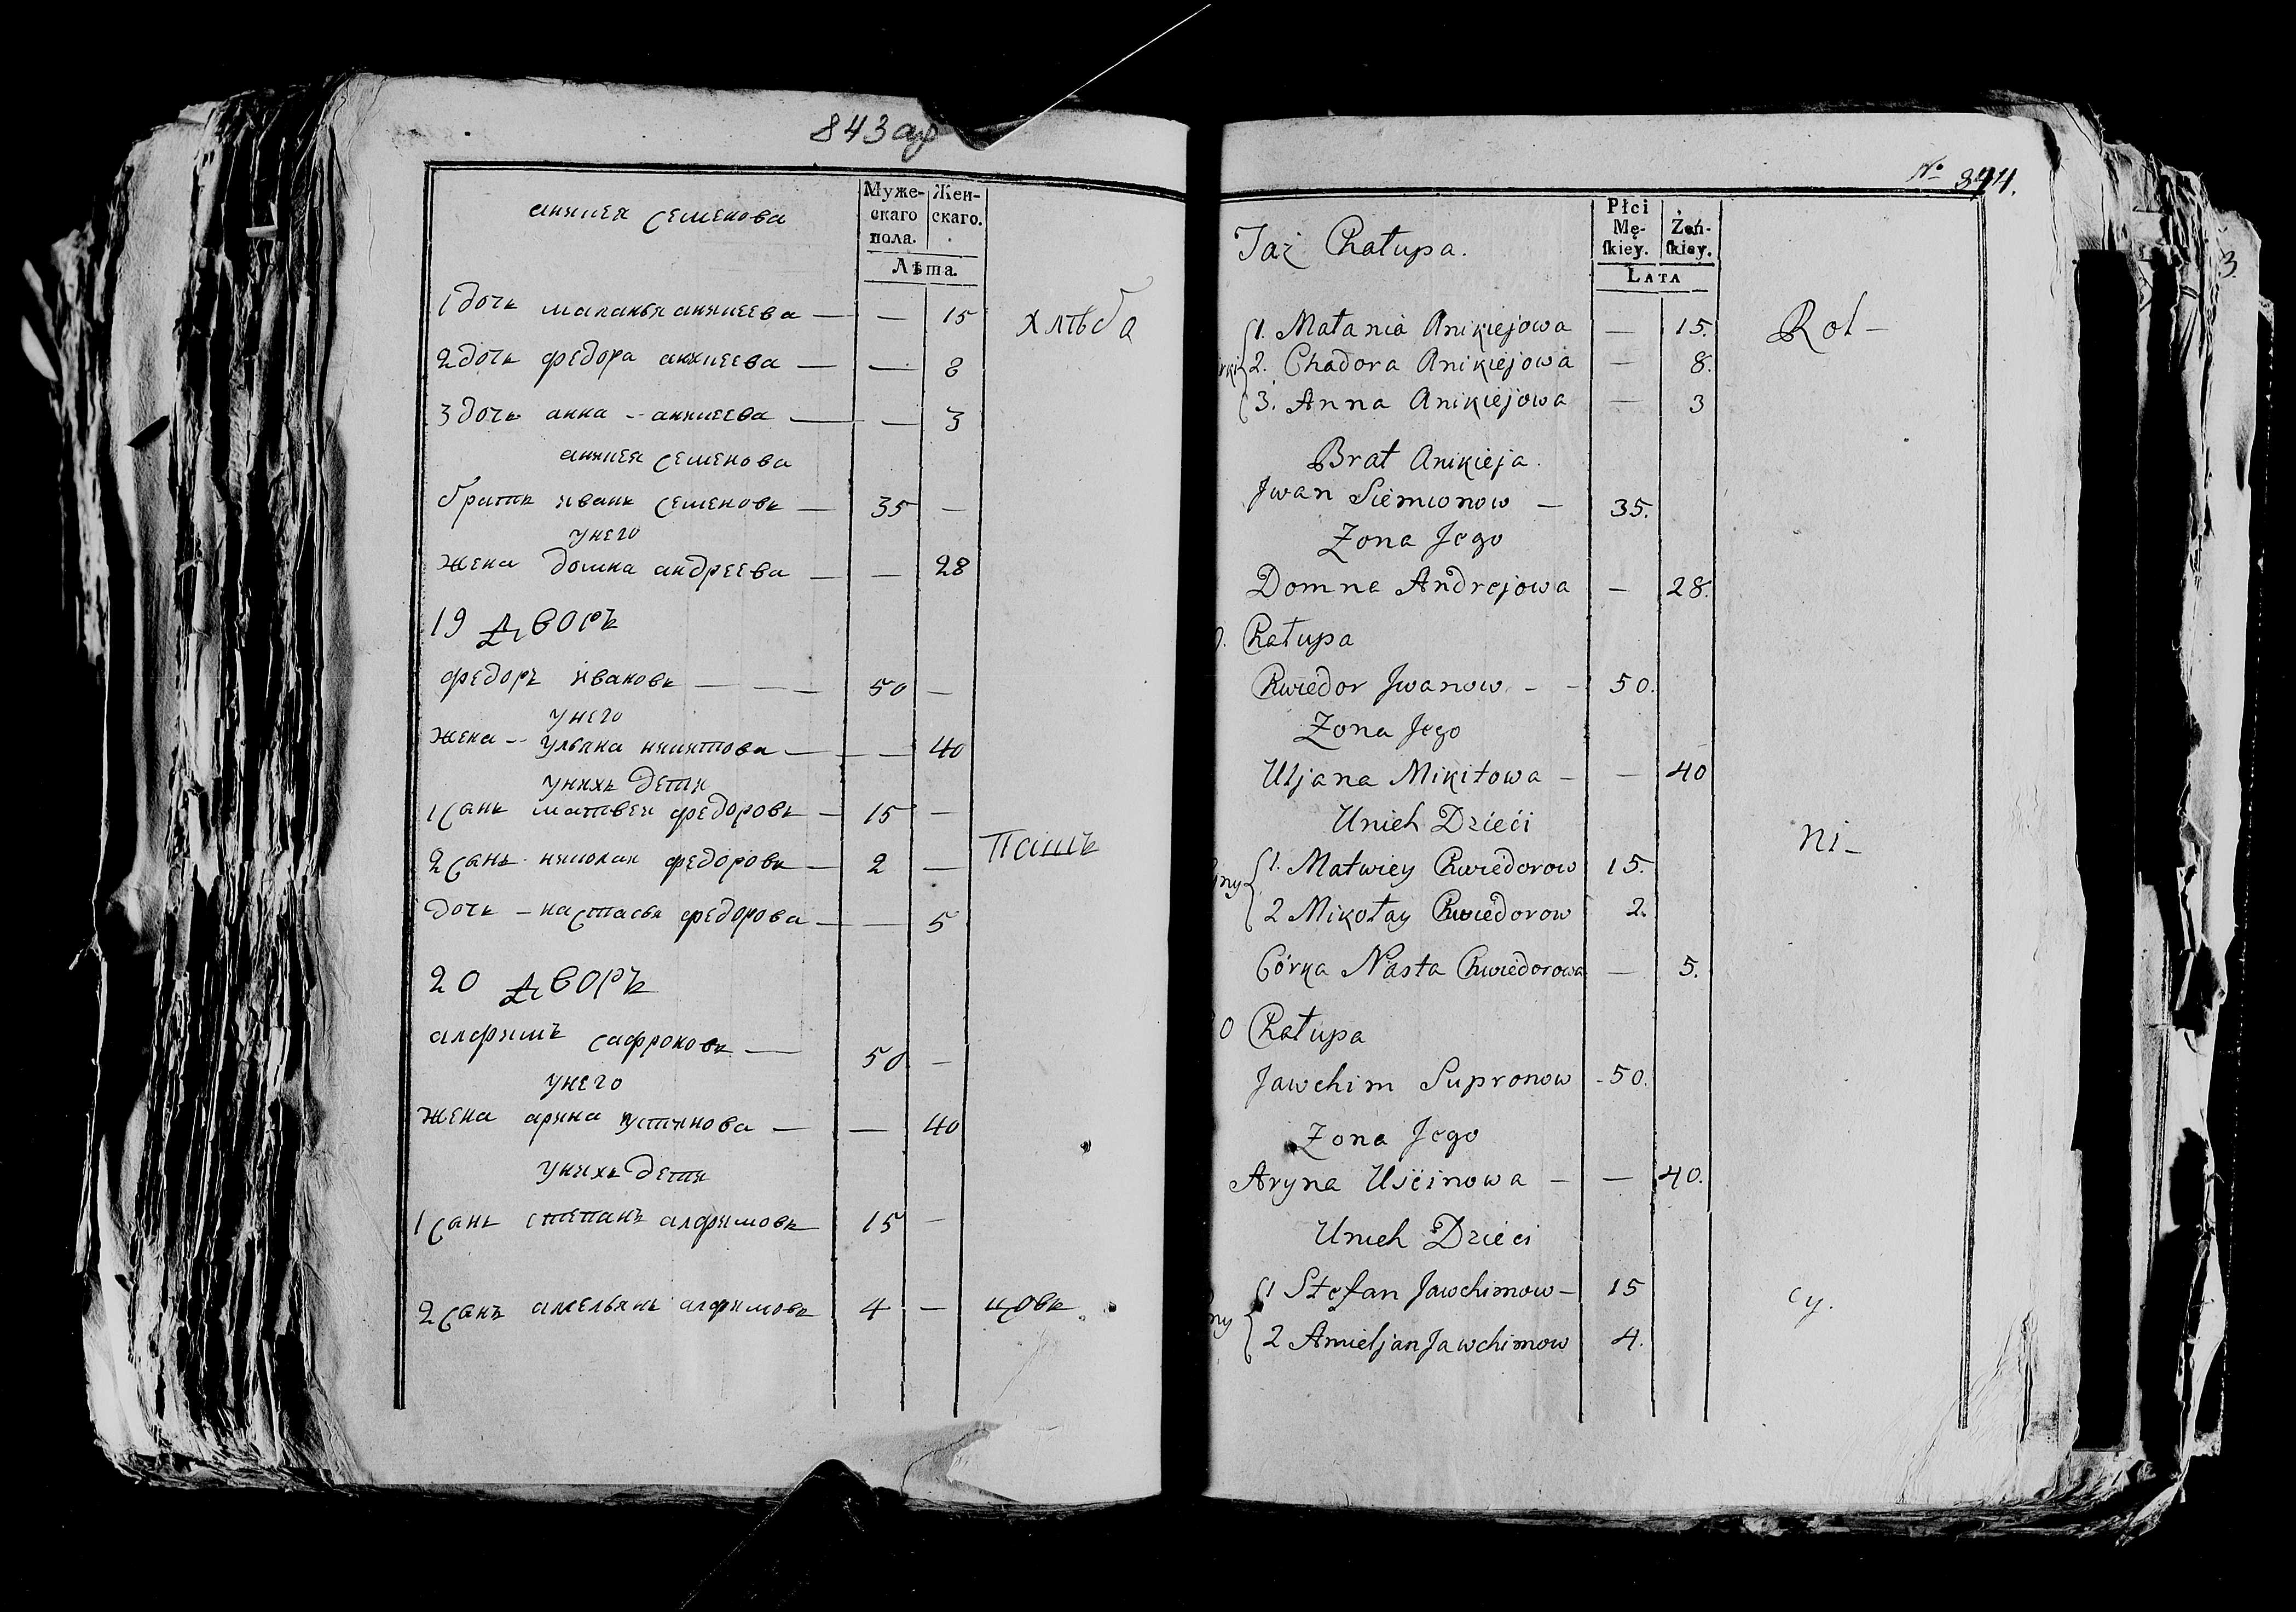 843 об
аникея семенова
Муже-
скаго
пола.
Жен-
скаго.
Лѣта.
1 дочь маланья аникеева — — 15
хлѣба
2 дочь федора аникеева — — 8
3 дочь анна - аникеева — — 3
аникея семенова
братъ иванъ семеновъ — 35 —
унего
жена домна андреева — — 28
19 дворъ
федоръ ивановъ — — — 50 —
унего
жена - ульяна никитова — — 40
унихъ дети
1 сынъ матвеи федоровъ — 15 —
Пашъ
2 сынъ николаи федоровъ — 2 —
дочь - настасья федорова — — 5
20 дворъ
алфимъ сафроновъ — 50 —
унего
жена арина устинова — — 40
унихъ дети
1 сынъ степанъ алфимовъ 15 —
2 сынъ амельянъ алфимовъ 4 —
цовъ
№ 844.
Płci
Mę-
ſkiey.
Żeń-
ſkiey.
LATA
Taż Chałupa.
1. Małania Anikiejowa — 15.
Rol-
2. Chadora Anikiejowa — 8.
3. Anna Anikiejowa — 3
Brat Anikieja.
Jwan Siemionow — 35.
Zona Jego
Domna Andrejowa — 28.
Chałupa
Chwiedor Jwanow - - 50.
Zona Jego
Uljana Mikitowa - — 40
Unich Dzieći
ni-
1. Matwiey Chwiedorow 15.
2 Mikołay Chwiedorow 2.
Córka Nasta Chwiedorowa — 5.
Chałupa
Jawchim Supronow - 50.
Zona Jego
Aryna Uśćinowa — — 40.
Unich Dzieci
1 Stefan Jawchimow - 15
cy.
2 Amieljan Jawchimow 4.